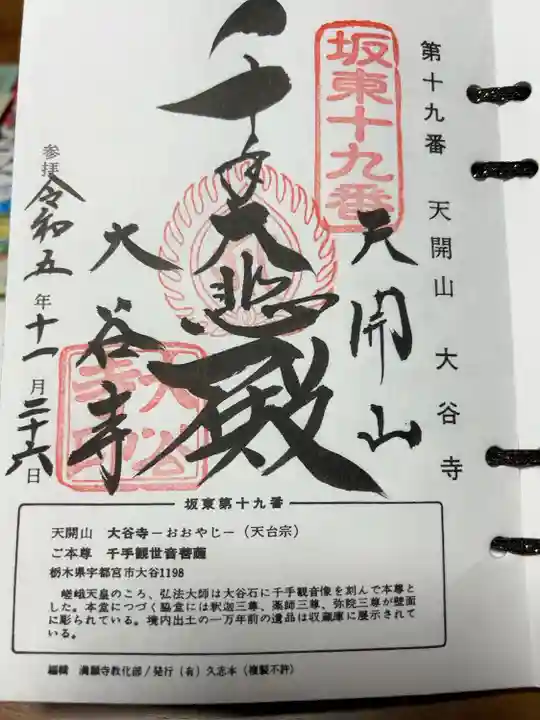 第十九番　天開山　大谷寺
坂東十九番
天開山
千手大悲殿
大谷寺
参拝 令和五年十一月二十六日
坂東第十九番
天開山　大谷寺－おおやじ－（天台宗）
ご本尊　千手観世音菩薩
栃木県宇都宮市大谷1198
嵯峨天皇のころ、弘法大師は大谷石に千手観音像を刻んで本尊と
した。本堂につづく脇堂には釈迦三尊、薬師三尊、弥陀三尊が壁面
に彫られている。境内出土の一万年前の遺品は収蔵庫に展示されて
いる。
編輯　満願寺教化部／発行（有）久志本（複製不許）